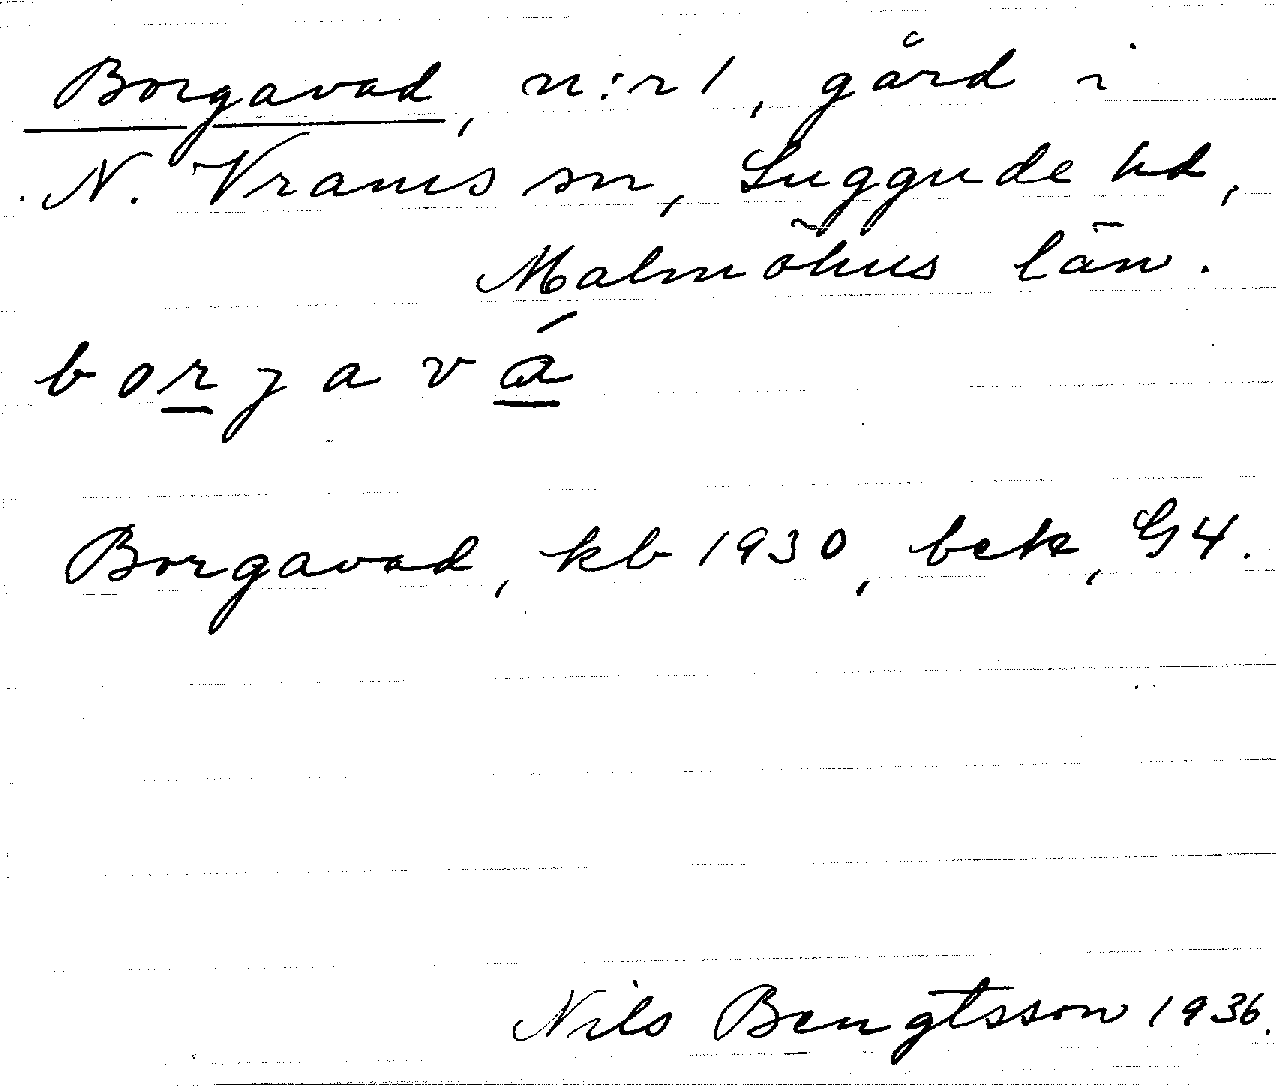 Borgavad, n:r 1, gård i
N. Vrams sn, Luggude hd,
Malmöhus län.
borjavá
Borgavad, kb 1930, bek, G4.
Nils Bengtsson 1936.